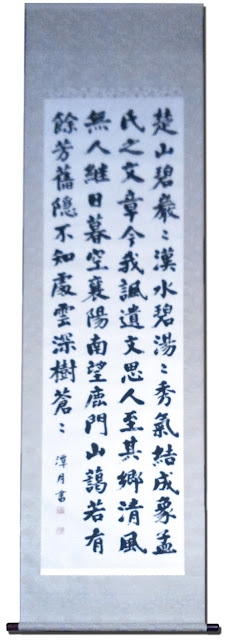 楚山碧巖〻漢水碧湯〻秀氣結成象孟
氏之文章今我諷遺文思人至其鄉清風
無人継日暮空襄陽南望鹿門山藹若有
餘芳舊隱不知處雲深樹蒼〻
潭月書